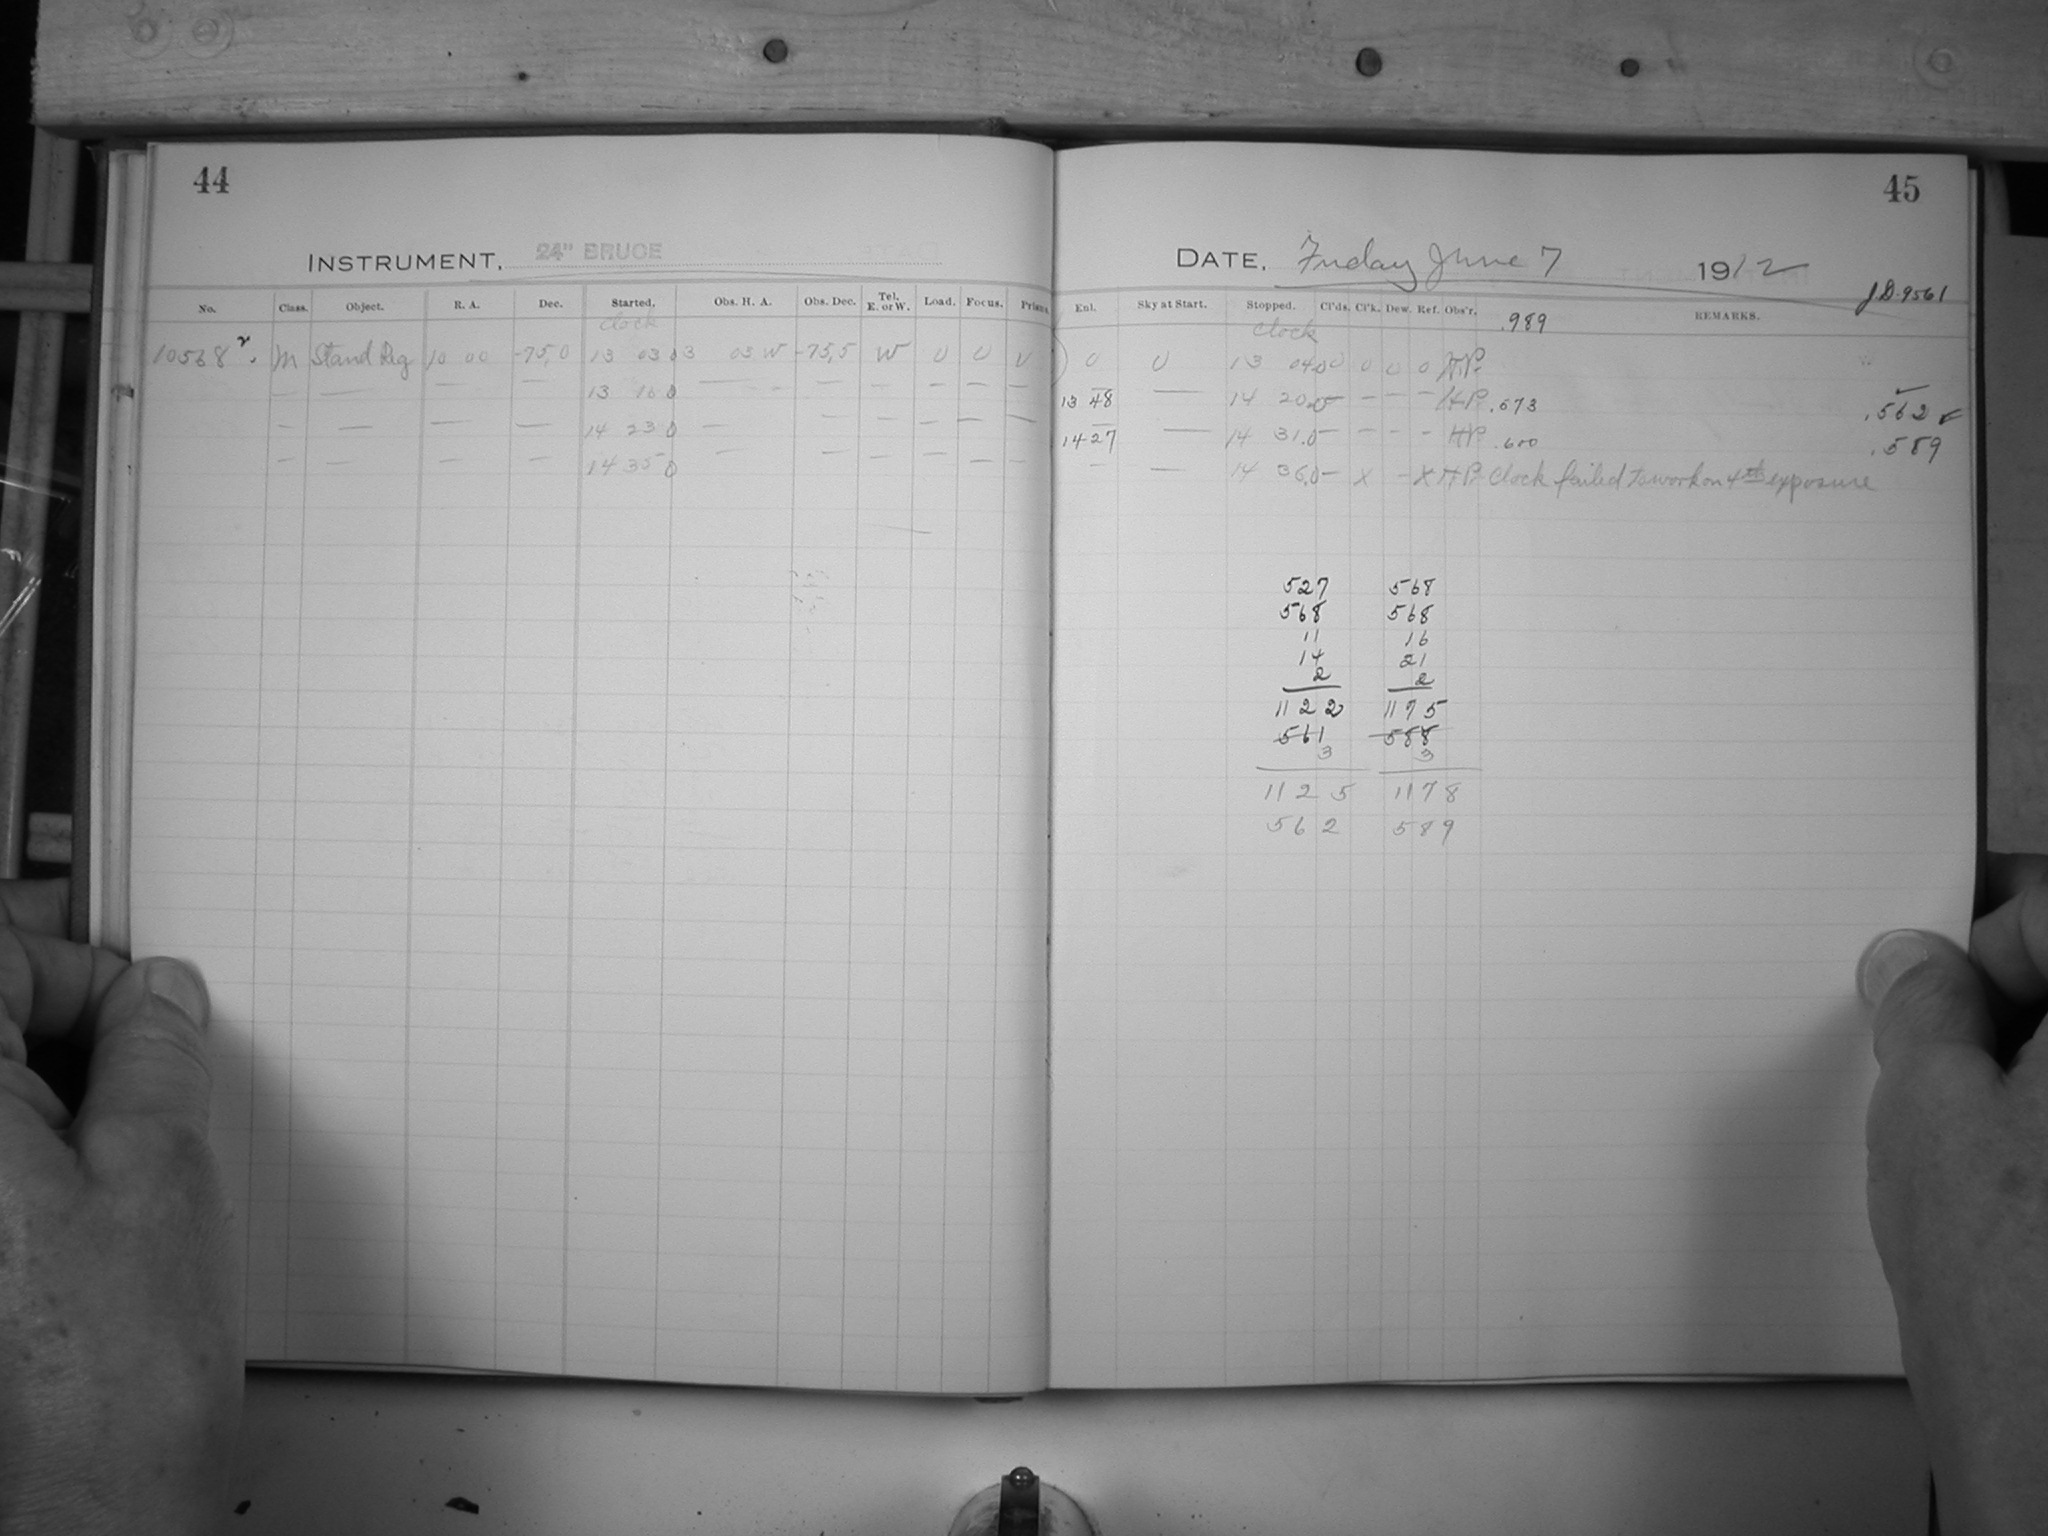 44
INSTRUMENT, 24" BRUCE
No. Class. Object. R. A. Dec. Started. Obs. H. A. Obs. Dec. Tel. E. or W. Load. Focus. Prism.
Clock
10568 M Stand Reg 10 00 -75,0 13 03 0 3 03 W -75,5 W U U U
— — 13 16 0 — — — — — —
— — — — 14 23 0 — — — — — —
— — — — 14 35 0 — — — — — —
45
DATE, Friday June 7 1912
J.D. 9561
Enl. Sky at Start. Stopped. Cl'ds. Cl'k. Dew. Ref. Obs'r. .989 REMARKS.
Clock
U U 13 04.0 U U U U H.P.
13 48 — 14 20.0 — — — — H.P. .573 .562
14 27 — 14 31.0 — — — — H.P. .600 .589
— — 14 36.0 — X — X H.P. Clock failed to work on 4th exposure
527 568
568 568
11 16
14 21
2 2
1122 1175
561 588
3 3
1125 1178
562 589